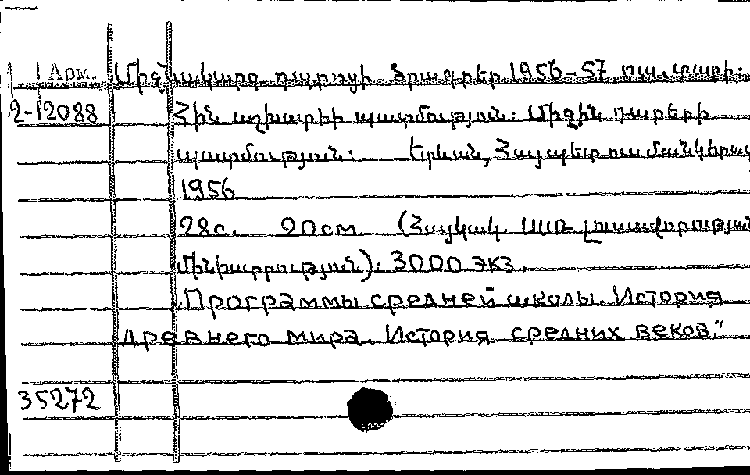 Арм. Միջնակարգ դպրոցի ծրագրեր 1956-57 ուս. տարի:
2-12088 Հին աշխարհի պատմություն: Միջին դարերի
պատմություն: Երևան, Հայպետուսմանկհրատ
1956
28с. 20см (Հայկական ՍՍՌ լուսավորության
մինիստրություն): 3000 экз.
„Программы средней школы. История
древнего мира. История средних веков."
35272